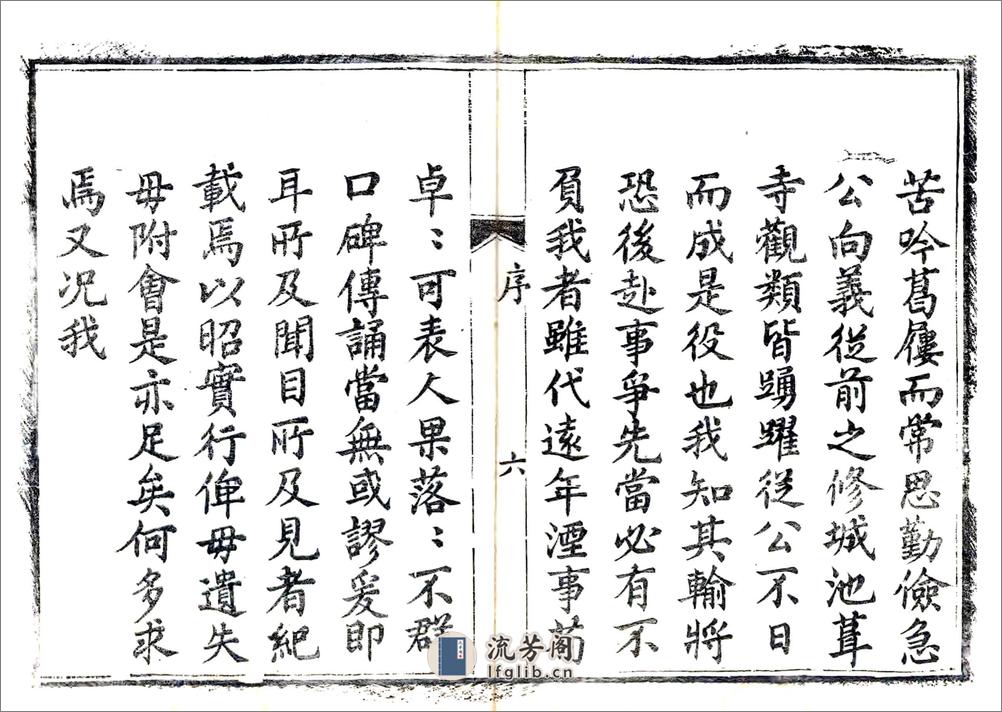 苦吟葛屨而常思勤儉急
公向義從前之修城池葺
寺觀類皆踴躍從公不日
而成是役也我知其輸將
恐後赴事爭先當必有不
負我者雖代遠年湮事苟
序
六
卓〻可表人果落〻不群
口碑傳誦當無或謬爰即
耳所及聞目所及見者紀
載焉以昭實行俾毋遺失
毋附會是亦足矣何多求
焉又況我
流芳阁
lfglib.cn